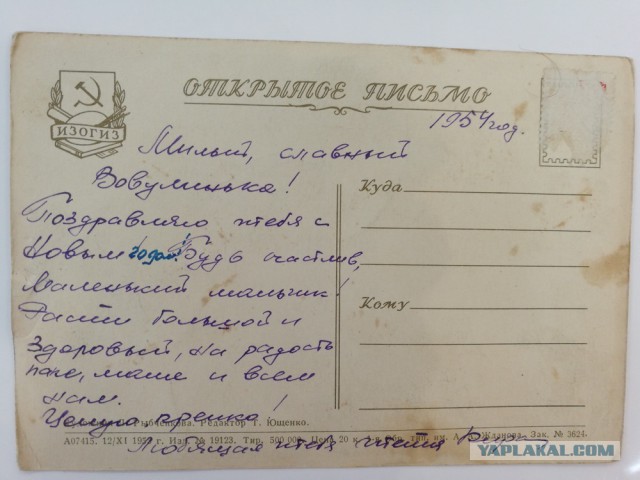 ИЗОГИЗ
ОТКРЫТОЕ ПИСЬМО
1954 год.
Милый, славный
Вовулинька!
Поздравляю тебя с
Новым годом! Будь счастлив,
Маленький мальчик!
Расти большой и
здоровый, на радость
папе, маме и всем
нам.
Целую крепко!
Любящая тебя тётя
Куда
Кому
Рыбченкова. Редактор Т. Ющенко.
А07415. 12/XI 195 г. Изд. № 19123. Тир. 500 000. Цена 20 к. Жданова. Зак. № 3624.
YAPLAKAL.COM